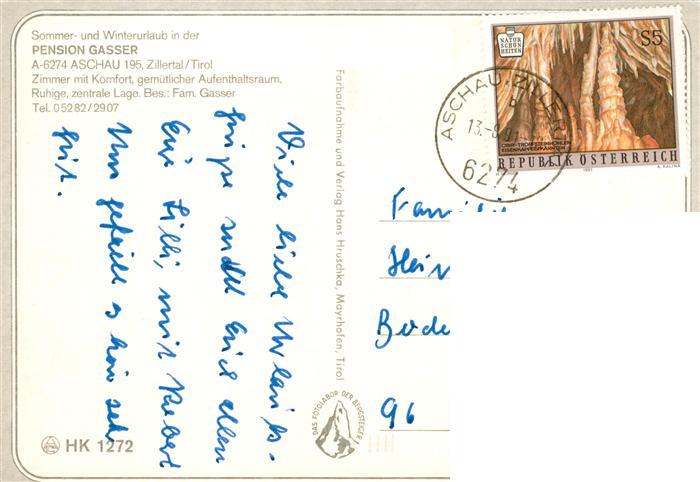 Sommer- und Winterurlaub in der
PENSION GASSER
A-6274 ASCHAU 195, Zillertal/Tirol
Zimmer mit Komfort, gemütlicher Aufenthaltsraum.
Ruhige, zentrale Lage. Bes.: Fam. Gasser
Tel. 05282/2907
Viele liebe Urlaubs-
grüße sendet Euch allen
Eure Lilli, mit Hubert
Uns gefällt es hier sehr
gut.
HK 1272
Farbaufnahme und Verlag Hans Hruschka, Mayrhofen, Tirol
DAS FOTOLABOR DER BERGSTEIGER
NATUR
SCHÖN
HEITEN
S5
OBIR-TROPFSTEINHÖHLEN
EISENKAPPEL/KÄRNTEN
REPUBLIK ÖSTERREICH
1991
ASCHAU, ZILLERT
b
6274
Famili
Hein
Bode
96